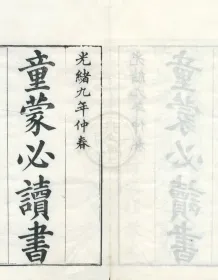 光緒九年仲春
童蒙必讀書